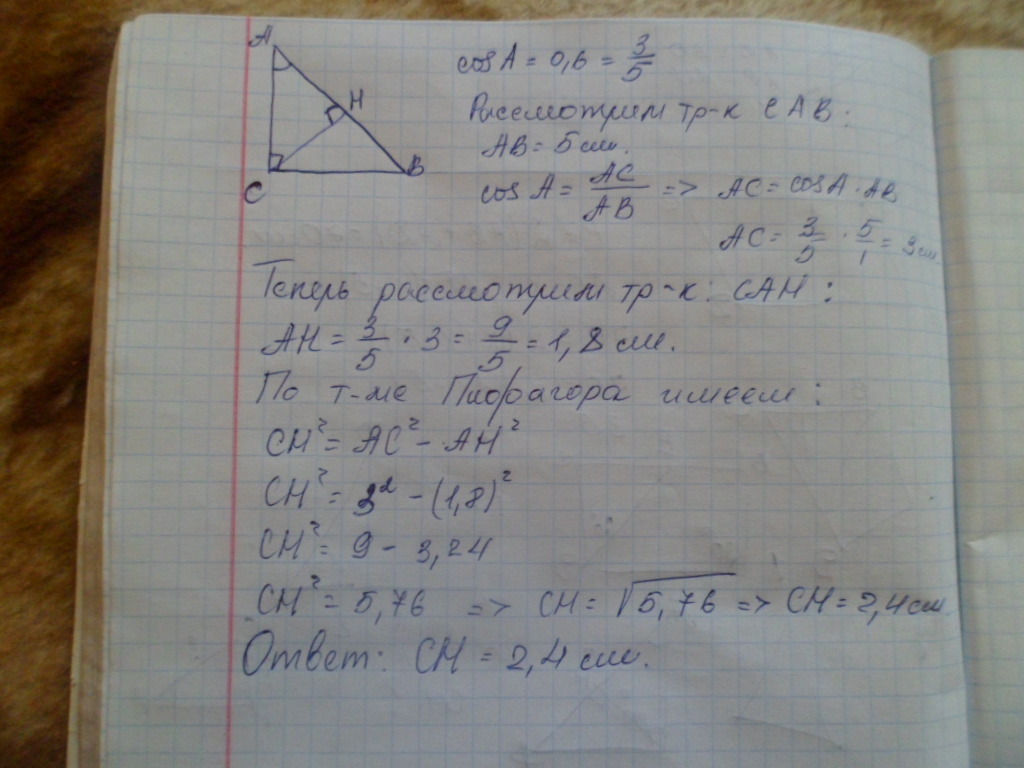 A
H
B
C
cos A = 0,6 = 3/5
Рассмотрим тр-к CAB:
AB = 5 см.
cos A = AC/AB => AC = cos A · AB
AC = 3/5 · 5/1 = 3 см
Теперь рассмотрим тр-к: CAH:
AH = 3/5 · 3 = 9/5 = 1,8 см.
По т-ме Пифагора имеем:
CH² = AC² - AH²
CH² = 3² - (1,8)²
CH² = 9 - 3,24
CH² = 5,76 => CH = √5,76 => CH = 2,4 см
Ответ: CH = 2,4 см.